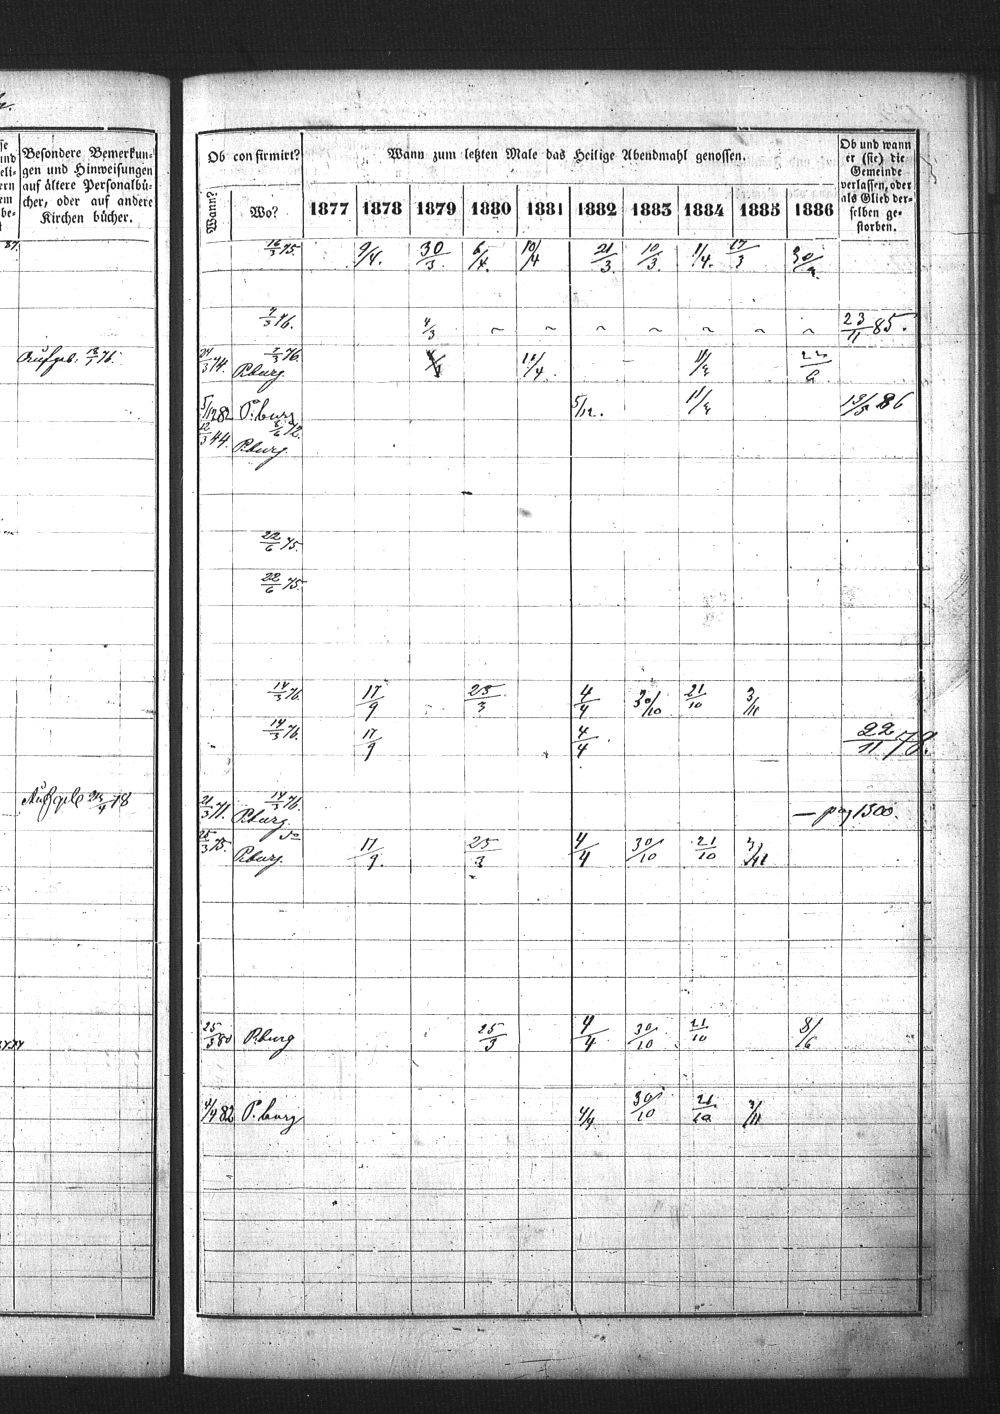 Besondere Bemerkun-
gen und Hinweisungen
auf ältere Personalbü-
cher, oder auf andere
Kirchen bücher.
Ob confirmirt?
Wann zum letzten Male das Heilige Abendmahl genossen.
Ob und wann
er (sie) die
Gemeinde
verlassen, oder
als Glied der-
selben ge-
storben.
Wann? Wo? 1877 1878 1879 1880 1881 1882 1883 1884 1885 1886
16/3 75. 9/4. 30/3. 6/4. 10/4 21/3. 10/3. 11/4. 17/3 30/3
7/3 76. 4/3 ~ ~ ~ ~ ~ ~ ~ 23/11 85.
24/3 74. 7/3 76. 11/4
P.burg.
5/12 82 P.burg 5/12. 86
12/3 44. 72.
P.burg.
22/6 75.
22/6 75.
14/3 76. 17/9 23/3 4/4 30/10 21/10 3/11
14/3 76. 17/9 4/4 22/11 78.
21/3 71. 14/3 76.
P.burg. — pag 1300.
25/3 75. do
P.burg. 17/9. 23/3 4/4 30/10 21/10 3/11
25/3 80 P.burg 25/3 4/4 30/10 21/10 8/6
4/4 82 P.burg 4/4 30/10 21/10 3/11